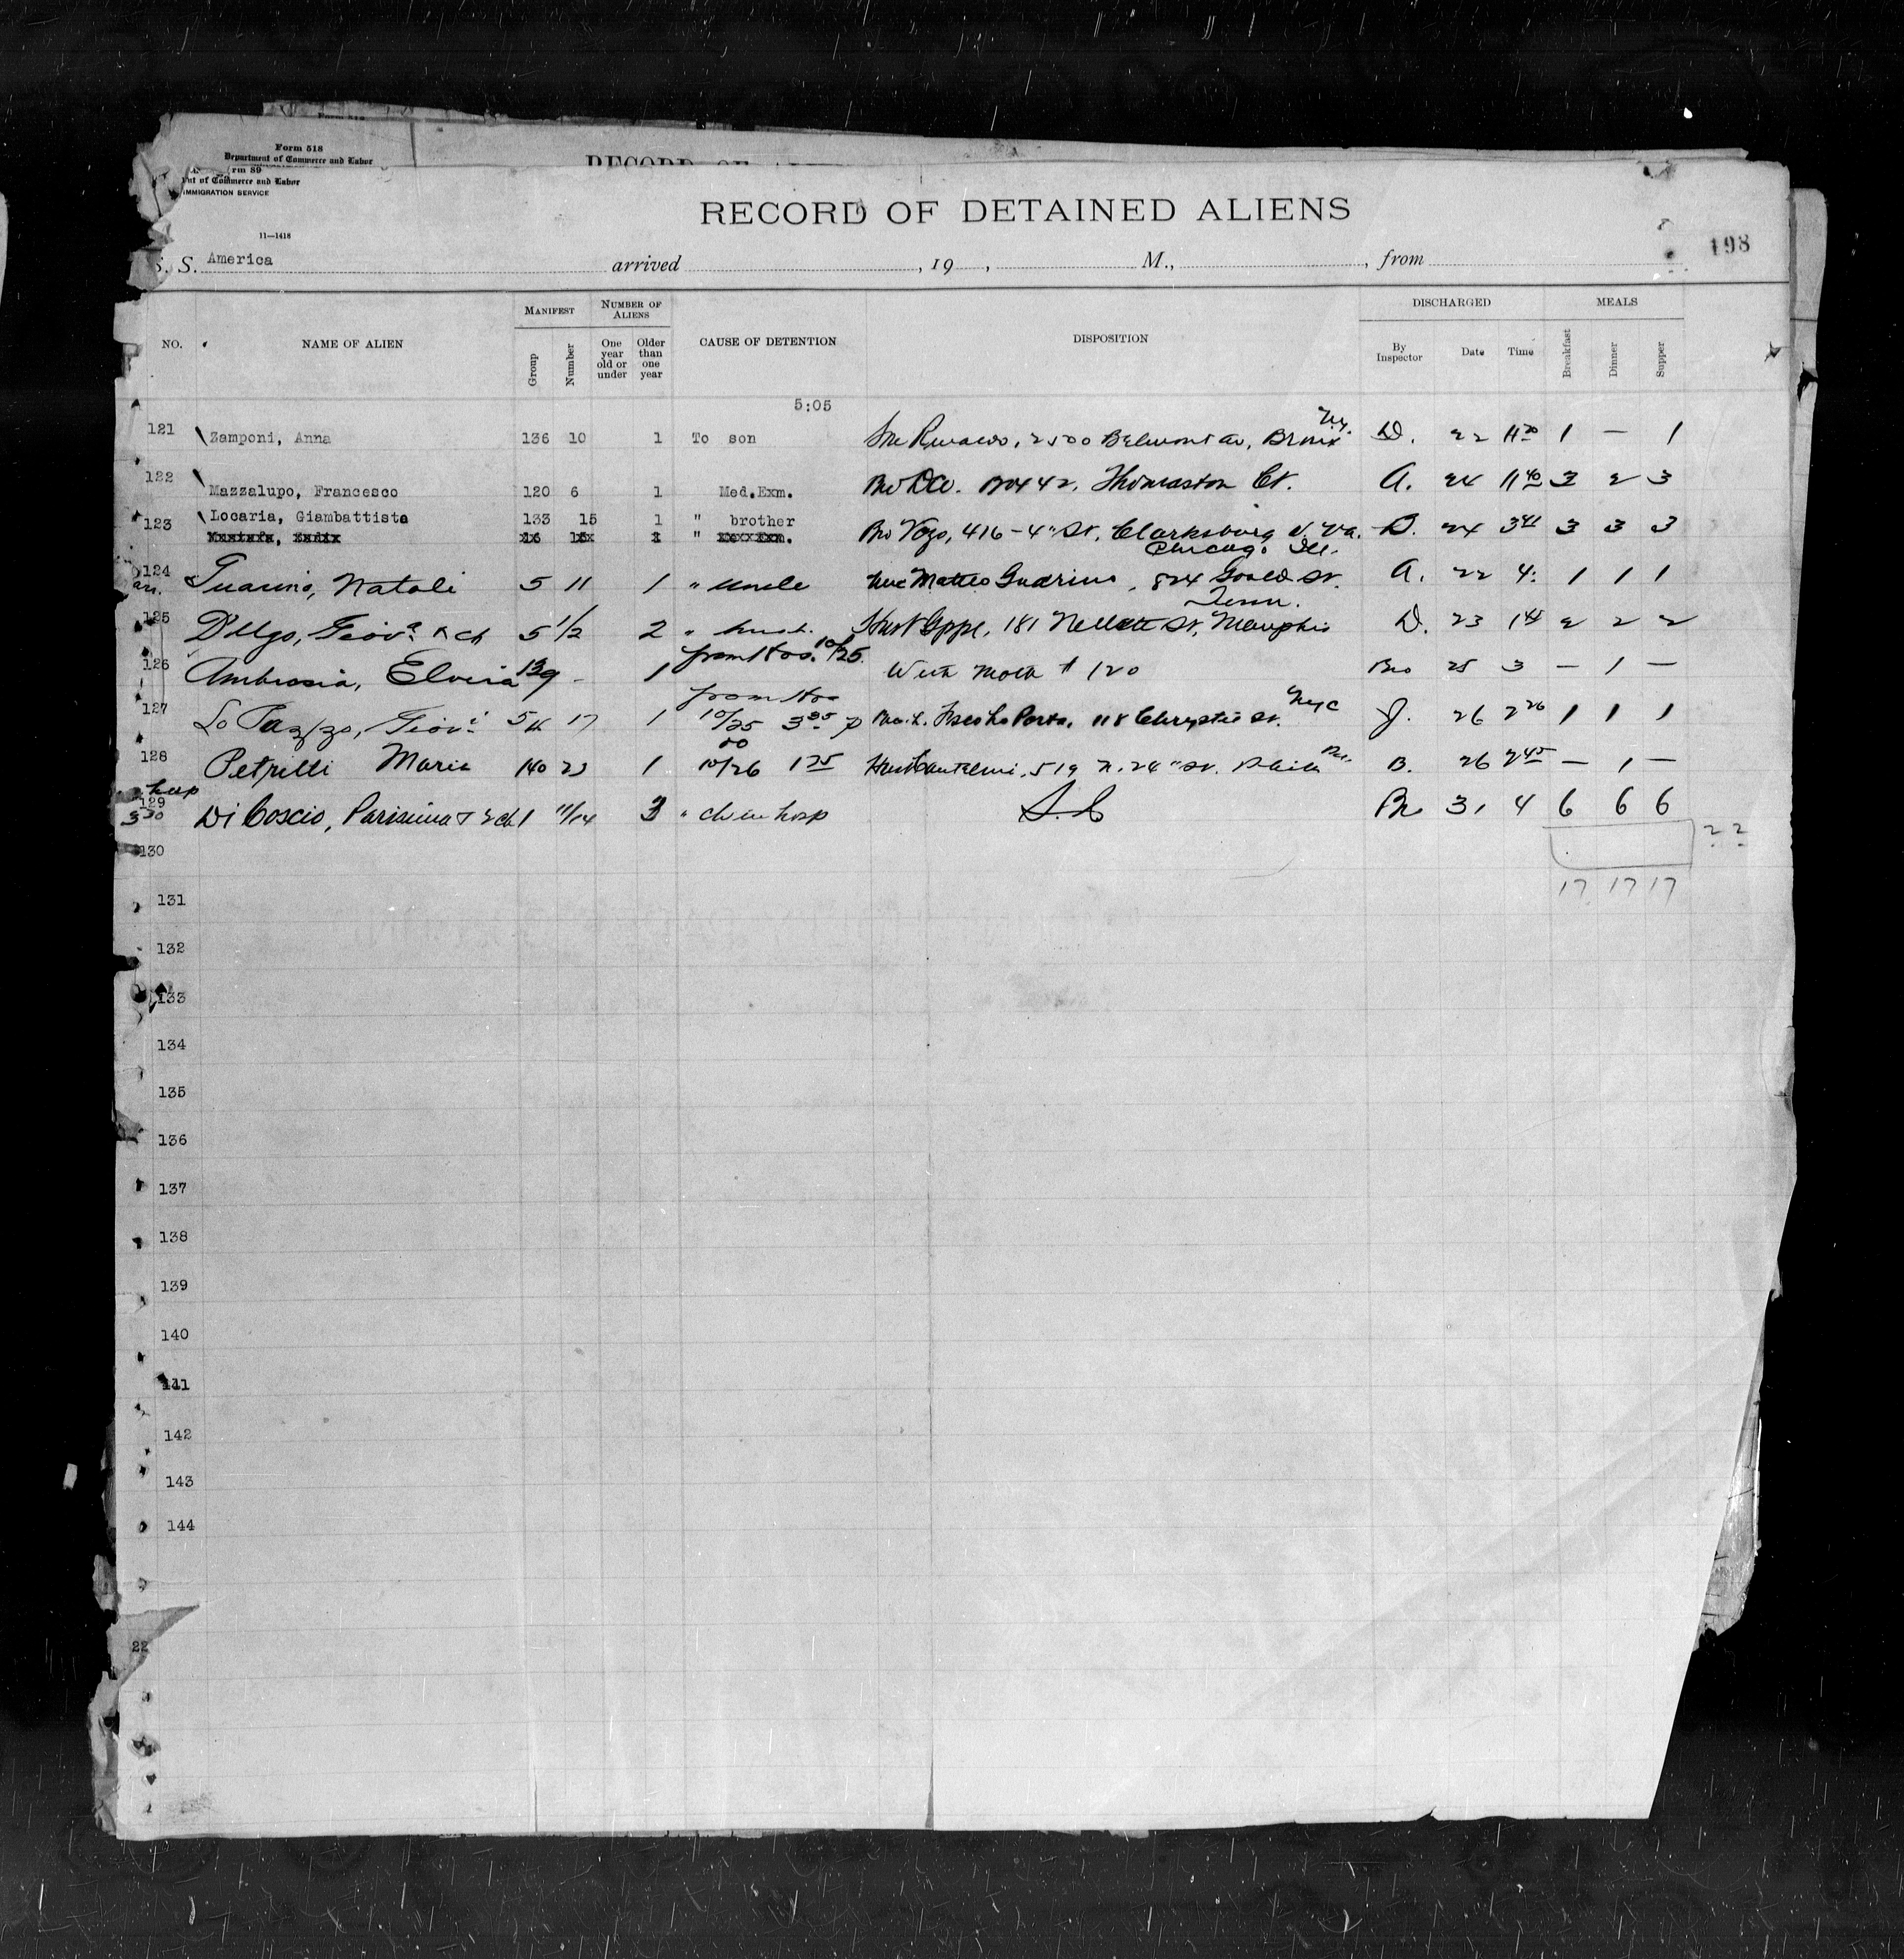 Form 518
Department of Commerce and Labor
rm 89
nt of Commerce and Labor
IMMIGRATION SERVICE
RECORD OF
RECORD OF DETAINED ALIENS
198
11—1418
S. S. America arrived , 19 , M., , from
NO. NAME OF ALIEN MANIFEST NUMBER OF ALIENS CAUSE OF DETENTION DISPOSITION DISCHARGED MEALS
Group Number One year old or under Older than one year By Inspector Date Time Breakfast Dinner Supper
5:05
N.Y.
121 Zamponi, Anna 136 10 1 To son 2500 Belmont av, Bronx D. 22 11 20 1 — 1
122 Mazzalupo, Francesco 120 6 1 Med.Exm. Bro Box 42, Thomaston Ct. A. 24 11 40 3 2 3
123 Locaria, Giambattista 133 15 1 " brother Bro 416 - 4" St, Clarksburg W. Va. D. 24 3 41 3 3 3
Chicago Ill.
124 Guarino, Natali 5 11 1 " uncle Unc Matteo Guarino, 824 Gould St. A. 22 4: 1 1 1
Tenn.
125 D'Ugo, Giov.a & ch 5 1/2 2 " husb. Husb Gppe, 181 St, Memphis D. 23 1 45 2 2 2
from Hos. 10/25
126 Ambrosia, Elvira 139 - 1 With Moth # 120 Bro 25 3 — 1 —
from Hos
NYC
127 Lo 5 17 1 10/25 3 35 Lo Porto, 118 Chrystie St. J. 26 2 20 1 1 1
128 Petrilli Maria 140 23 1 10/26 1 25 Husb 519 N. 24" St. Phila Pa. B. 26 2 45 — 1 —
hosp
129 3 30 Di Coscio, Parisina & 2 ch 1 11/14 3 " ch in hosp S. I. Br 31 4 6 6 6
22
130
17 17 17
131
132
133
134
135
136
137
138
139
140
141
142
143
144
22